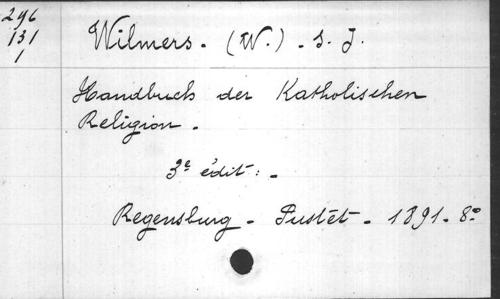 296
131
1
Wilmers. (W.). S. J.
Handbuch der Katholischen
Religion.
3e édit: .
Regensburg. Pustet. 1891. 8o